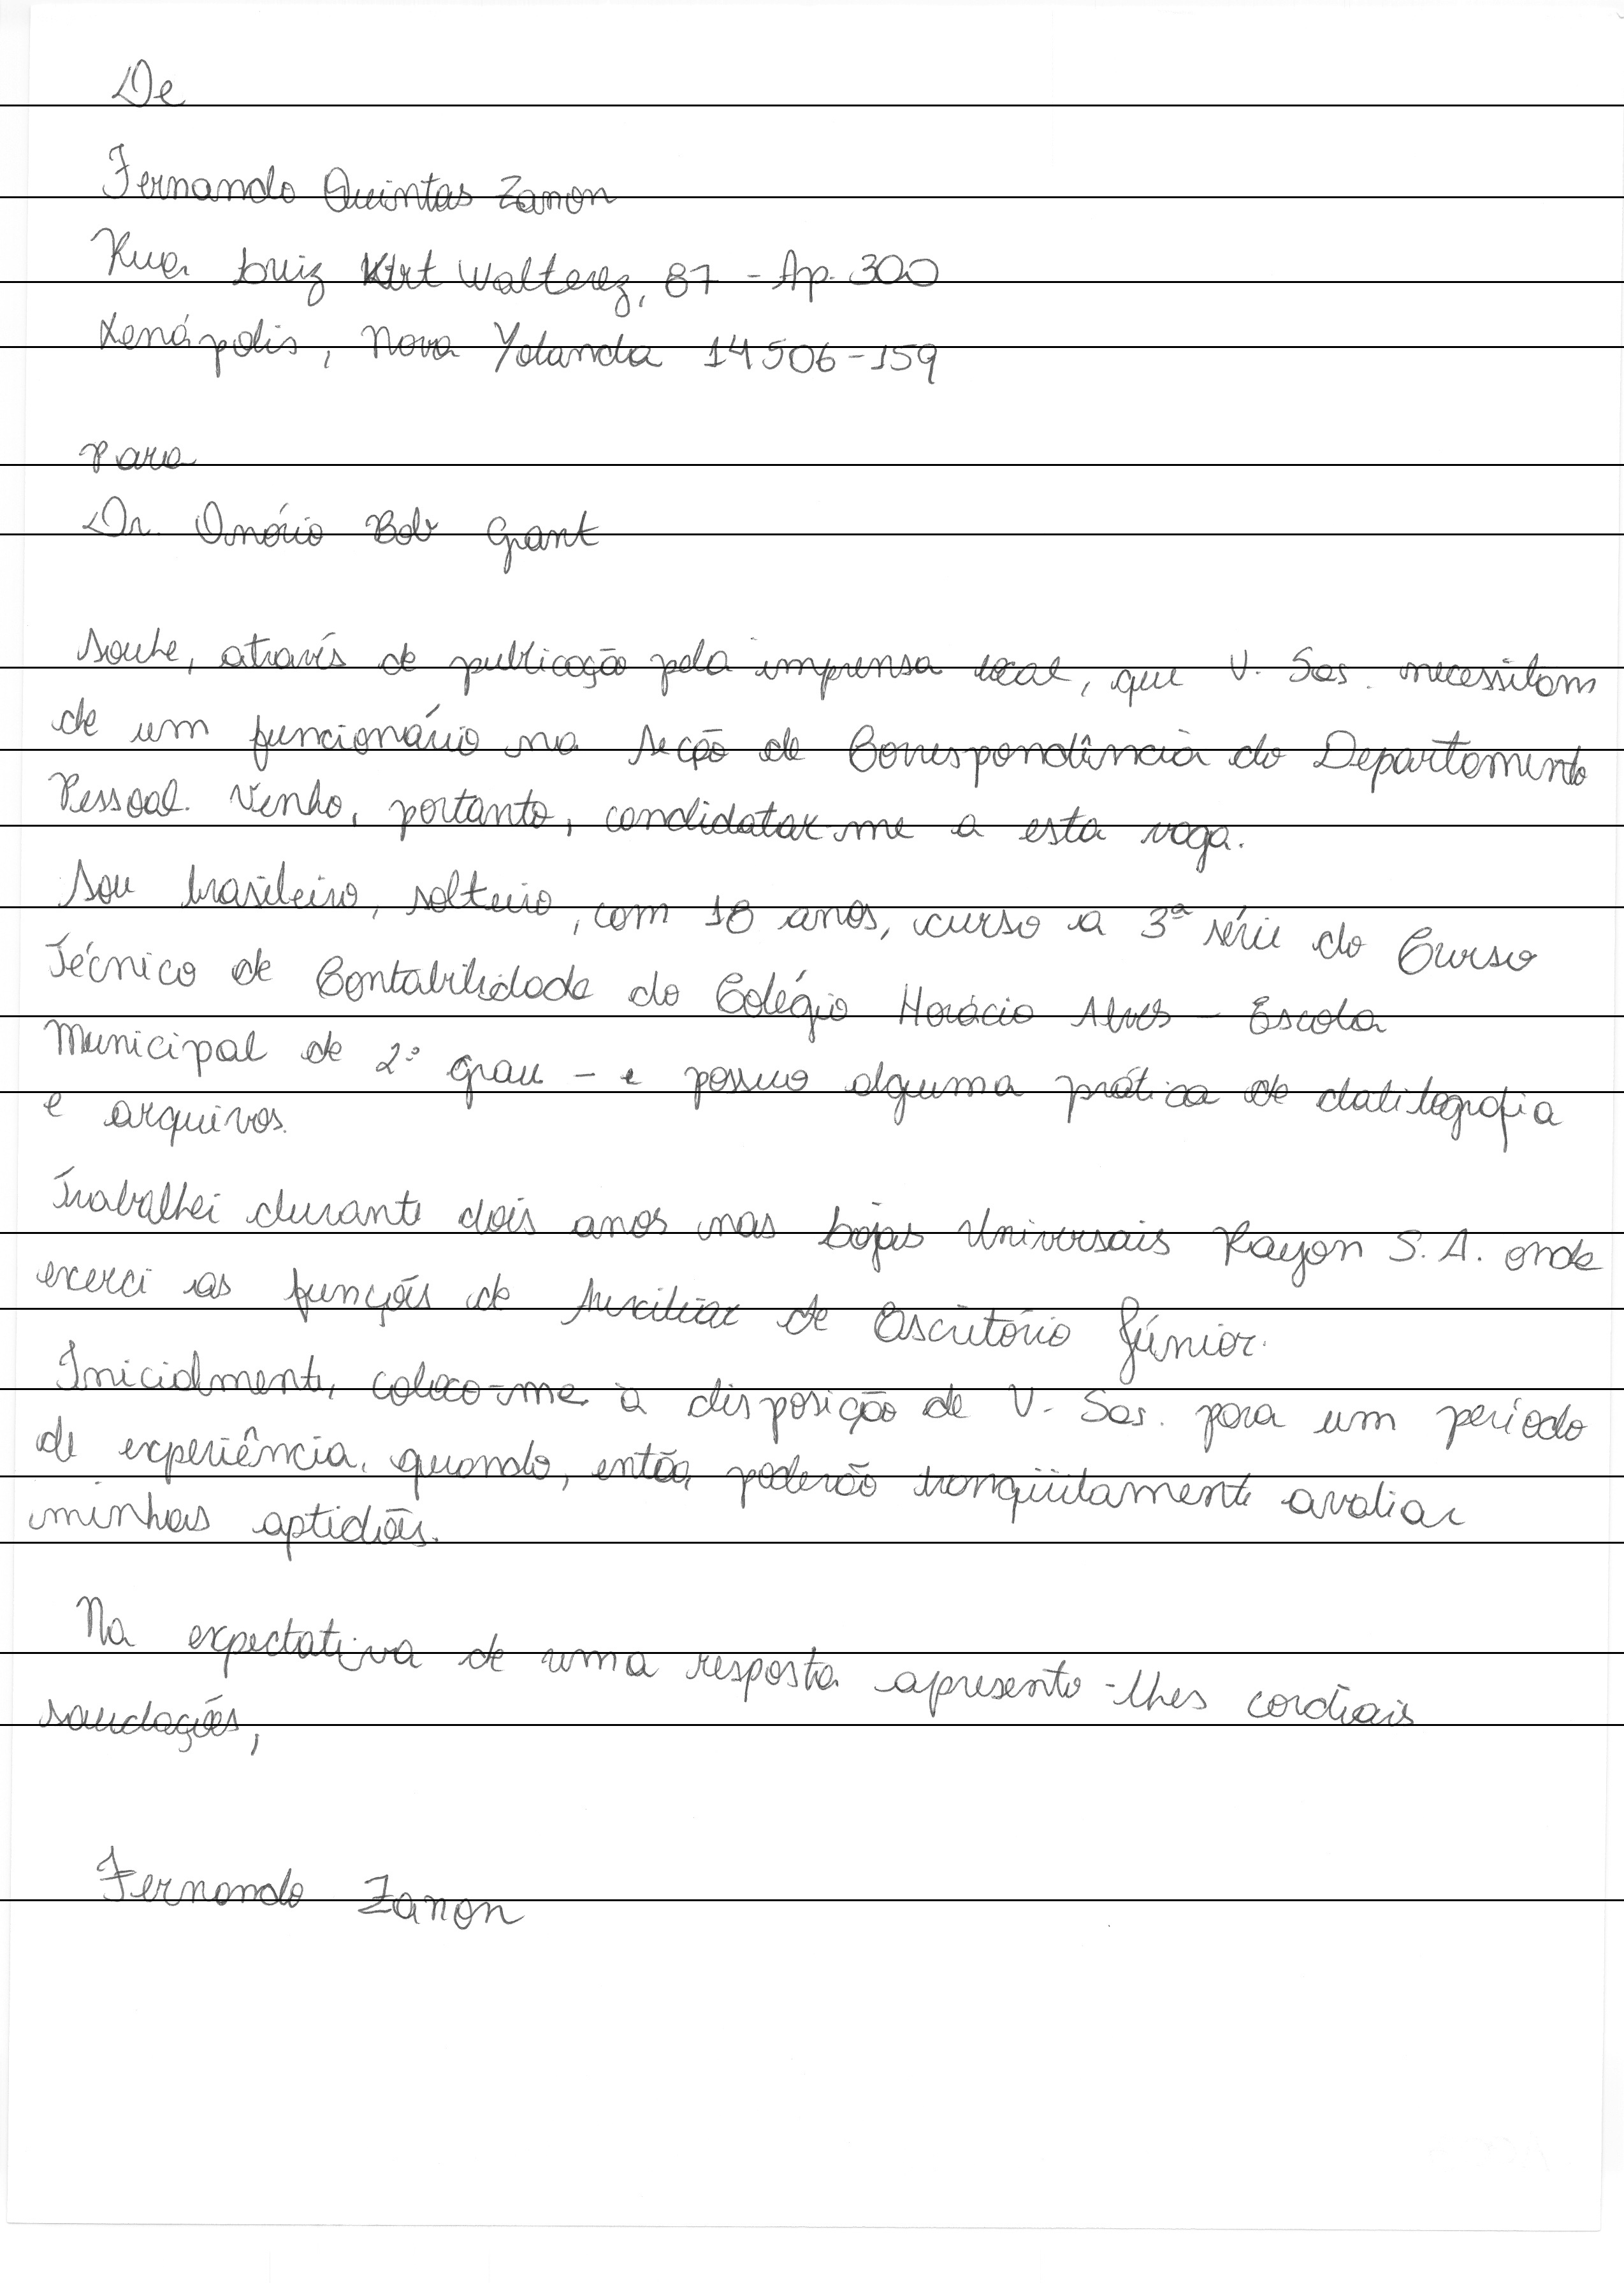 De
Fernando Quintas Zanon
Rua Luiz Kirt Walterez, 87 - Ap. 300
Xenópolis, Nova Yolanda 14506-159
Para
Dr. Onório Bob Grant
Soube, através de publicação pela imprensa local, que V. Sas. necessitam
de um funcionário na Seção de Correspondência do Departamento
Pessoal. Venho, portanto, candidatar-me a esta vaga.
Sou brasileiro, solteiro, com 18 anos, curso a 3ª série do Curso
Técnico de Contabilidade do Colégio Horácio Alves - Escola
Municipal de 2º grau - e possuo alguma prática de datilografia
e arquivos.
Trabalhei durante dois anos nas Lojas Universais Rayon S. A. onde
exerci as funções de Auxiliar de Escritório Júnior.
Inicialmente, coloco-me à disposição de V. Sas. para um período
de experiência, quando, então, poderão tranqüilamente avaliar
minhas aptidões.
Na expectativa de uma resposta apresento-lhes cordiais
saudações,
Fernando Zanon